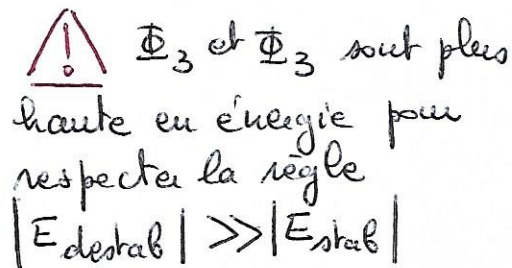 ⚠ Φ₃ et Φ₃ sont plus
haute en énergie pour
respecter la règle
|E destab| >> |E stab|